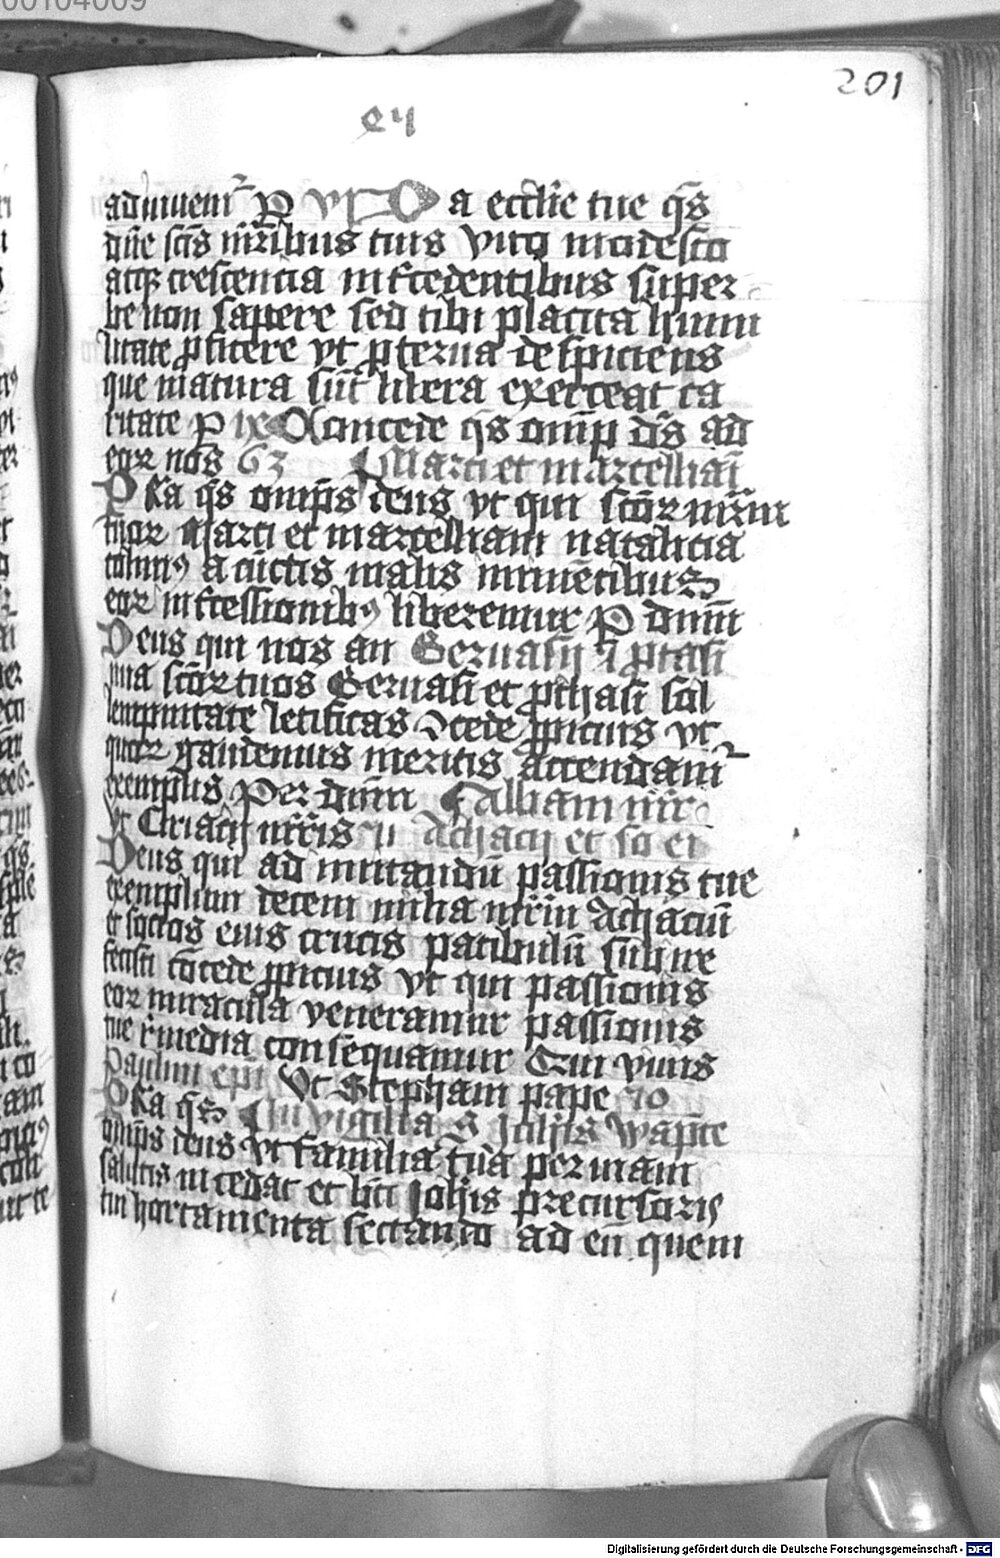 00104009
201
adiuuem᷑ P vi Da eccl̄ie tue q̄s
dn̄e sc̄is mr̄ibus tuis vito modesto
atqꝫ crescencia int̄cedentibus super
be non sapere sed tibi placita humi
litate ꝓficere vt ꝓterua despiciens
que matura sūt libera exerceat ca
ritate P ix Concede q̄s omīp ds̄ ad
eoꝝ nos̄ 63 Marci et marcelliaī
Pr̄a q̄s omīps deus vt qui sc̄oꝝ mr̄m
tuoꝝ Marci et marcelliani natalicia
colimꝰ a cūctis malis iminētibus
eoꝝ int̄cessionibꝰ liberemur P dm̄m
Deus qui nos an Geruasij ꝓtasi
nua sc̄oꝝ tuos Geruasi et ꝓthasi sol
lempnitate letificas ꝯcede ꝓpicius vt
quoꝝ gaudemus meritis accendam᷑
exemplis Per dm̄m Albani mr̄
vt Ciriaci mr̄ris Achacij et so ei
Deus qui ad imitandū passionis tue
exemplum decem milia mr̄m Achaciū
et socios eius crucis patibulū subire
fecisti cōcede ꝓpicius vt qui passionis
eoꝝ miracula veneramur passionis
tue r̄media consequamur Qui viuis
Paulini ep̄i Vt Stephani pape 70
Pr̄a q̄s In vigilia S Joh̄is
omīps deus vt familia tua per uiam
salutis incedat et bt̄i Joh̄is precursoris
hortamenta sectando ad eū quem
Digitalisierung gefördert durch die Deutsche Forschungsgemeinschaft - DFG